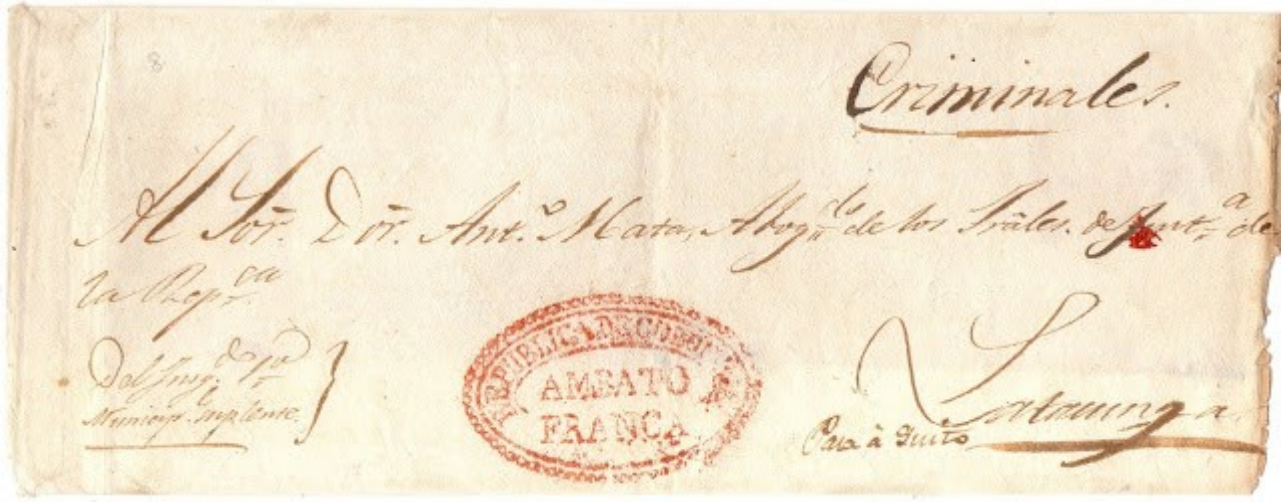 8
Criminales.
Al Sōr. Dōr. Ant.º Mata, Abog.do de los Trāles. de Just.a de
la Rep.ca
Del Juzg.do 1º
Municip. Suplente.
REPUBLICA DEL
AMBATO
FRANCA
Latacunga.
Pasa à Quito